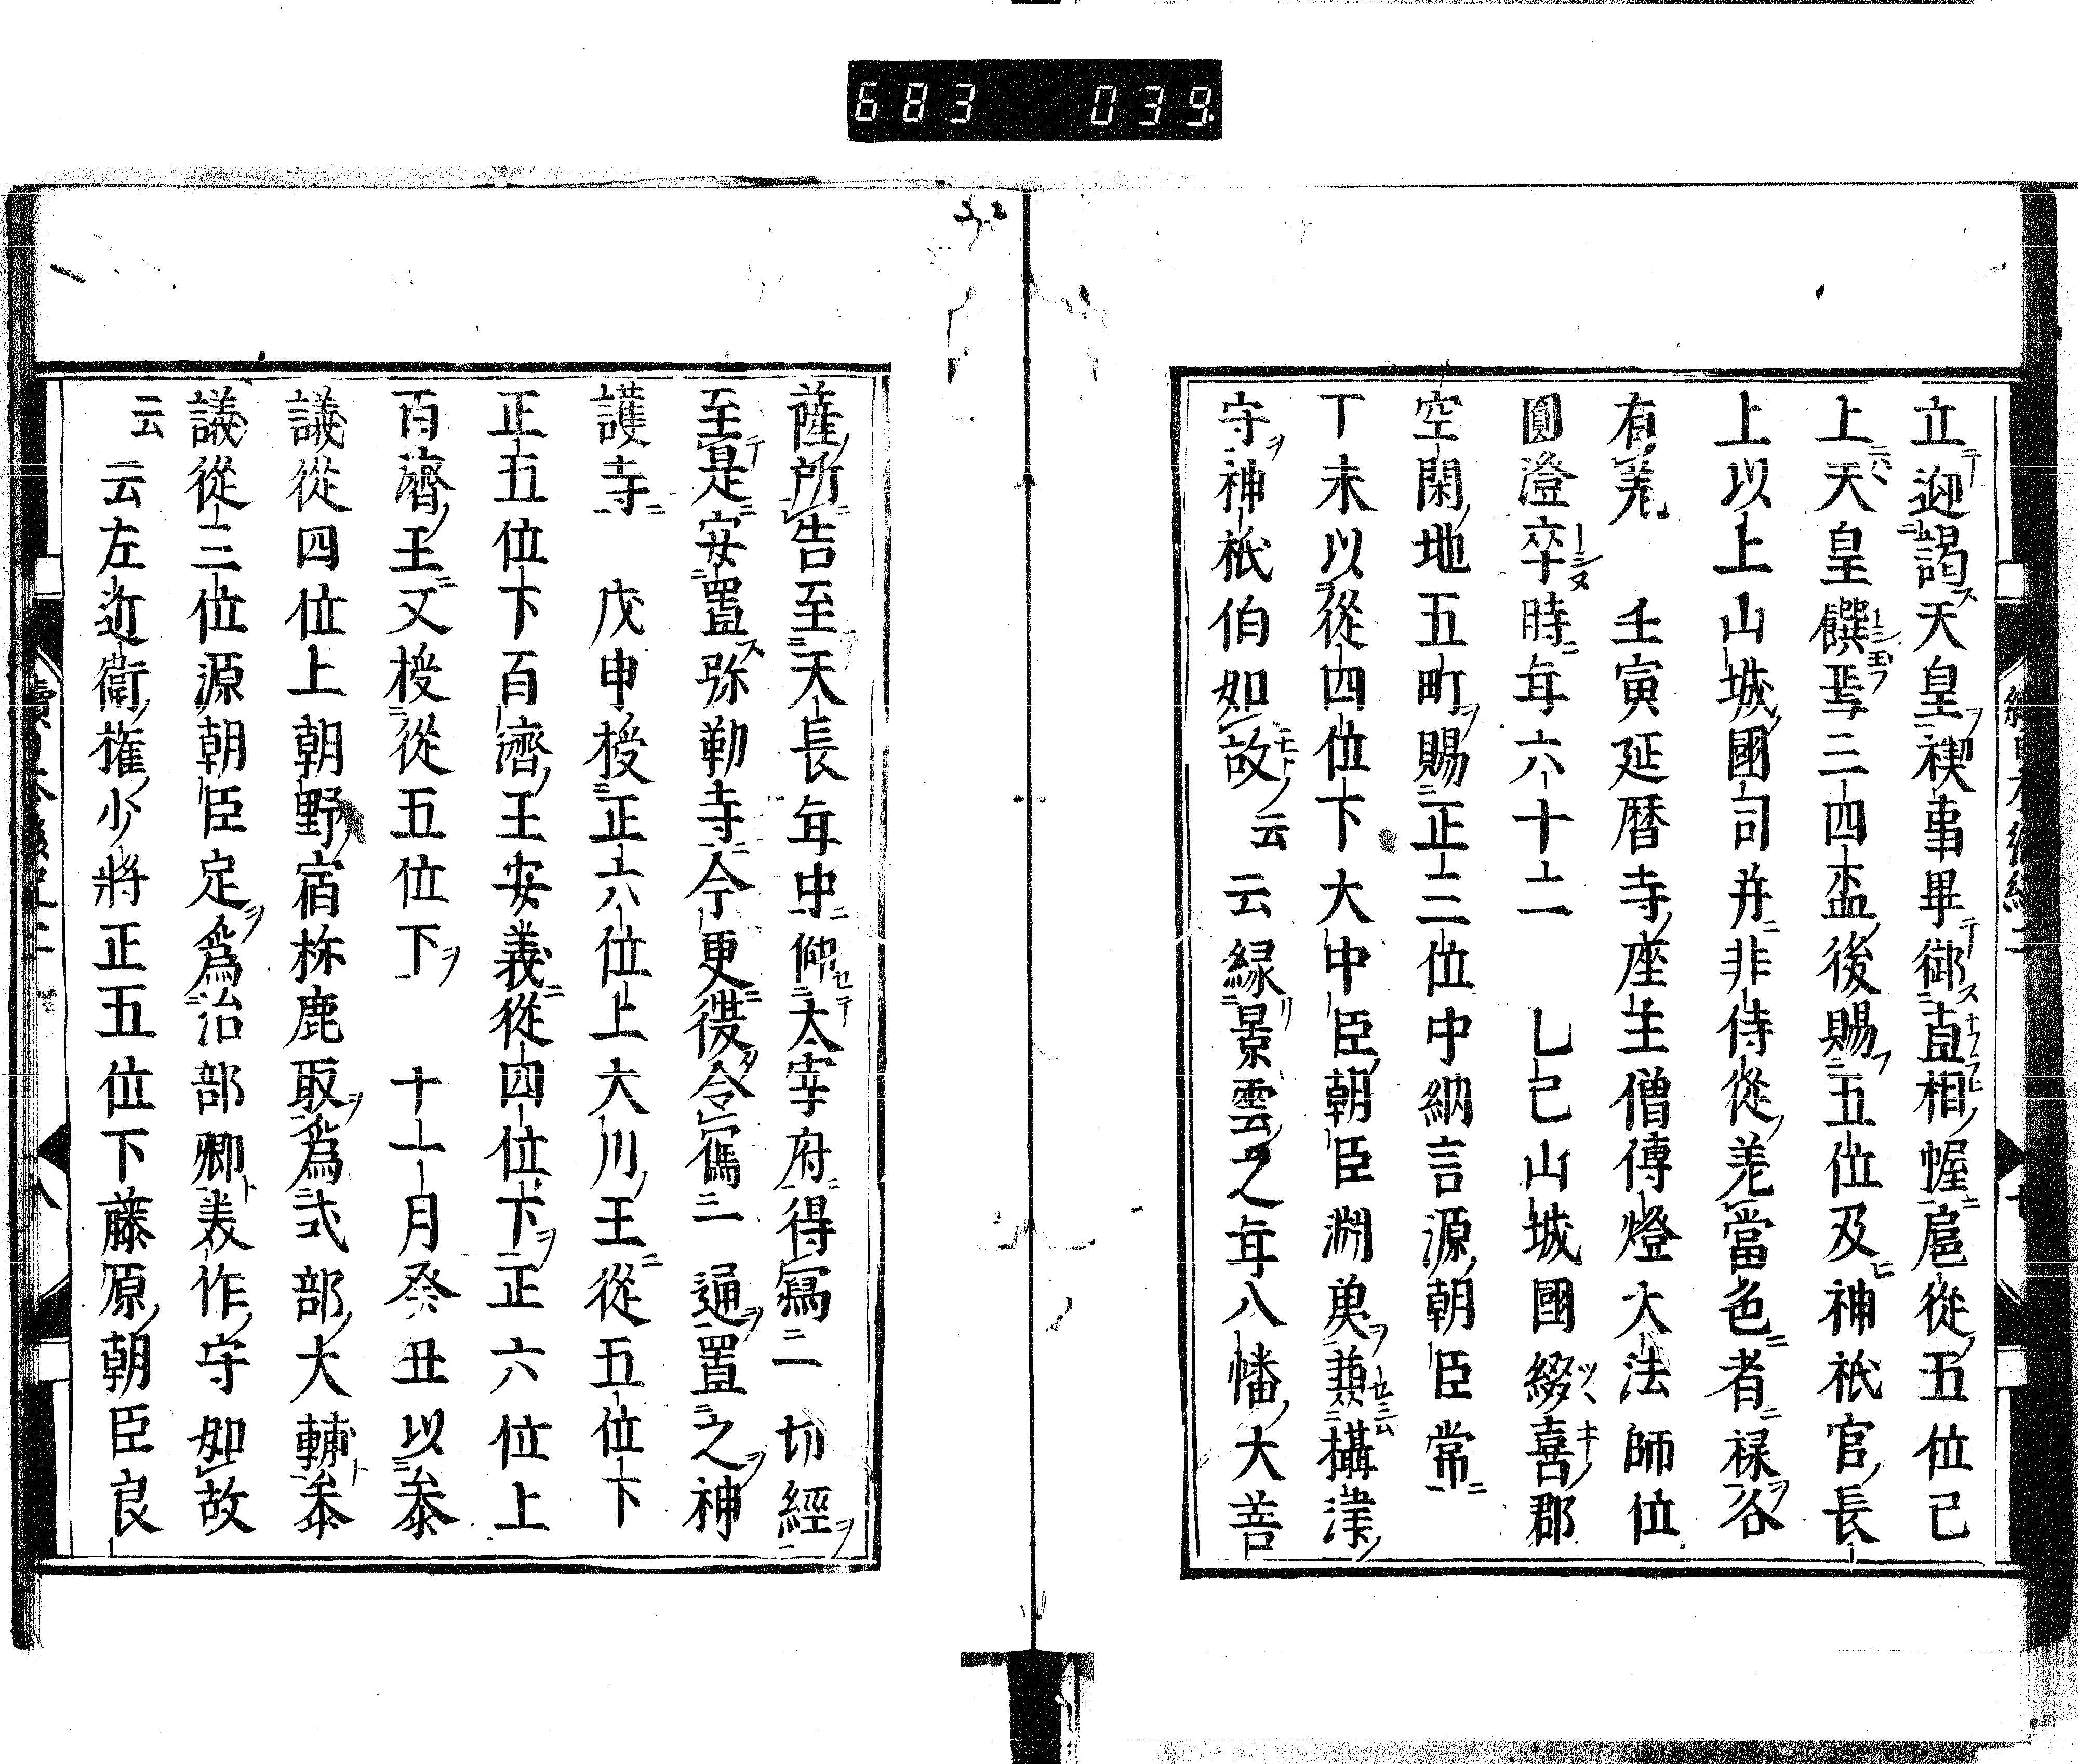 683 039
立迎謁天皇禊事畢御直相幄扈從五位已
上天皇饌焉三四盃後賜五位及神祇官長
上以上山城國司并非侍從差當色者祿各
有差 壬寅延暦寺座主僧傳燈大法師位
圓澄卒時年六十二 乙巳山城國綴喜郡
空閑地五町賜正三位中納言源朝臣常
丁未以從四位下大中臣朝臣淵魚兼攝津
守神祇伯如故云云緑景雲之年八幡大菩
薩所告至天長年中仰大宰府得寫一切經
至是安置弥勒寺今更復令寫一通置之神
護寺 戊申授正六位上大川王從五位下
正五位下百濟王安義從四位下正六位上
百濟王文授從五位下 十一月癸丑以參
議從四位上朝野宿祢鹿取爲式部大輔參
議從三位源朝臣定爲治部卿美作守如故
云云左近衛權少將正五位下藤原朝臣良